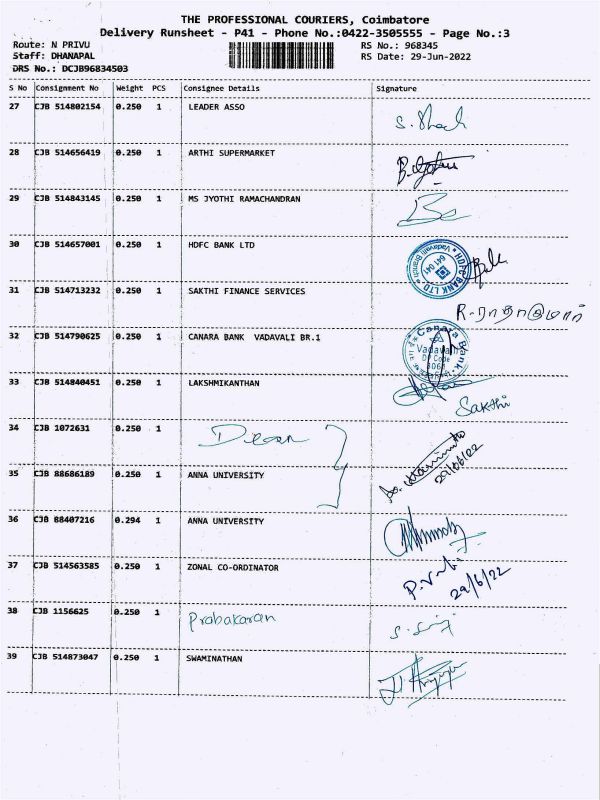 THE PROFESSIONAL COURIERS, Coimbatore
Delivery Runsheet - P41 - Phone No.:0422-3505555 - Page No.:3
Route: N PRIVU RS No.: 968345
Staff: DHANAPAL RS Date: 29-Jun-2022
DRS No.: DCJB96834503
S No Consignment No Weight PCS Consignee Details Signature
27 CJB 514802154 0.250 1 LEADER ASSO
28 CJB 514656419 0.250 1 ARTHI SUPERMARKET
29 CJB 514843145 0.250 1 MS JYOTHI RAMACHANDRAN
30 CJB 514657001 0.250 1 HDFC BANK LTD
HDFC BANK LTD * Vadavalli Branch * 641 041
31 CJB 514713232 0.250 1 SAKTHI FINANCE SERVICES
R. ராதாகுமார்
32 CJB 514790625 0.250 1 CANARA BANK VADAVALI BR.1
Canara Bank
Vadavalli
DP Code
33 CJB 514840451 0.250 1 LAKSHMIKANTHAN
Sakthi
34 CJB 1072631 0.250 1 Dean
35 CJB 88686189 0.250 1 ANNA UNIVERSITY
29/06/22
36 CJB 88407216 0.294 1 ANNA UNIVERSITY
37 CJB 514563585 0.250 1 ZONAL CO-ORDINATOR
29/6/22
38 CJB 1156625 0.250 1 Prabakaran
39 CJB 514873047 0.250 1 SWAMINATHAN